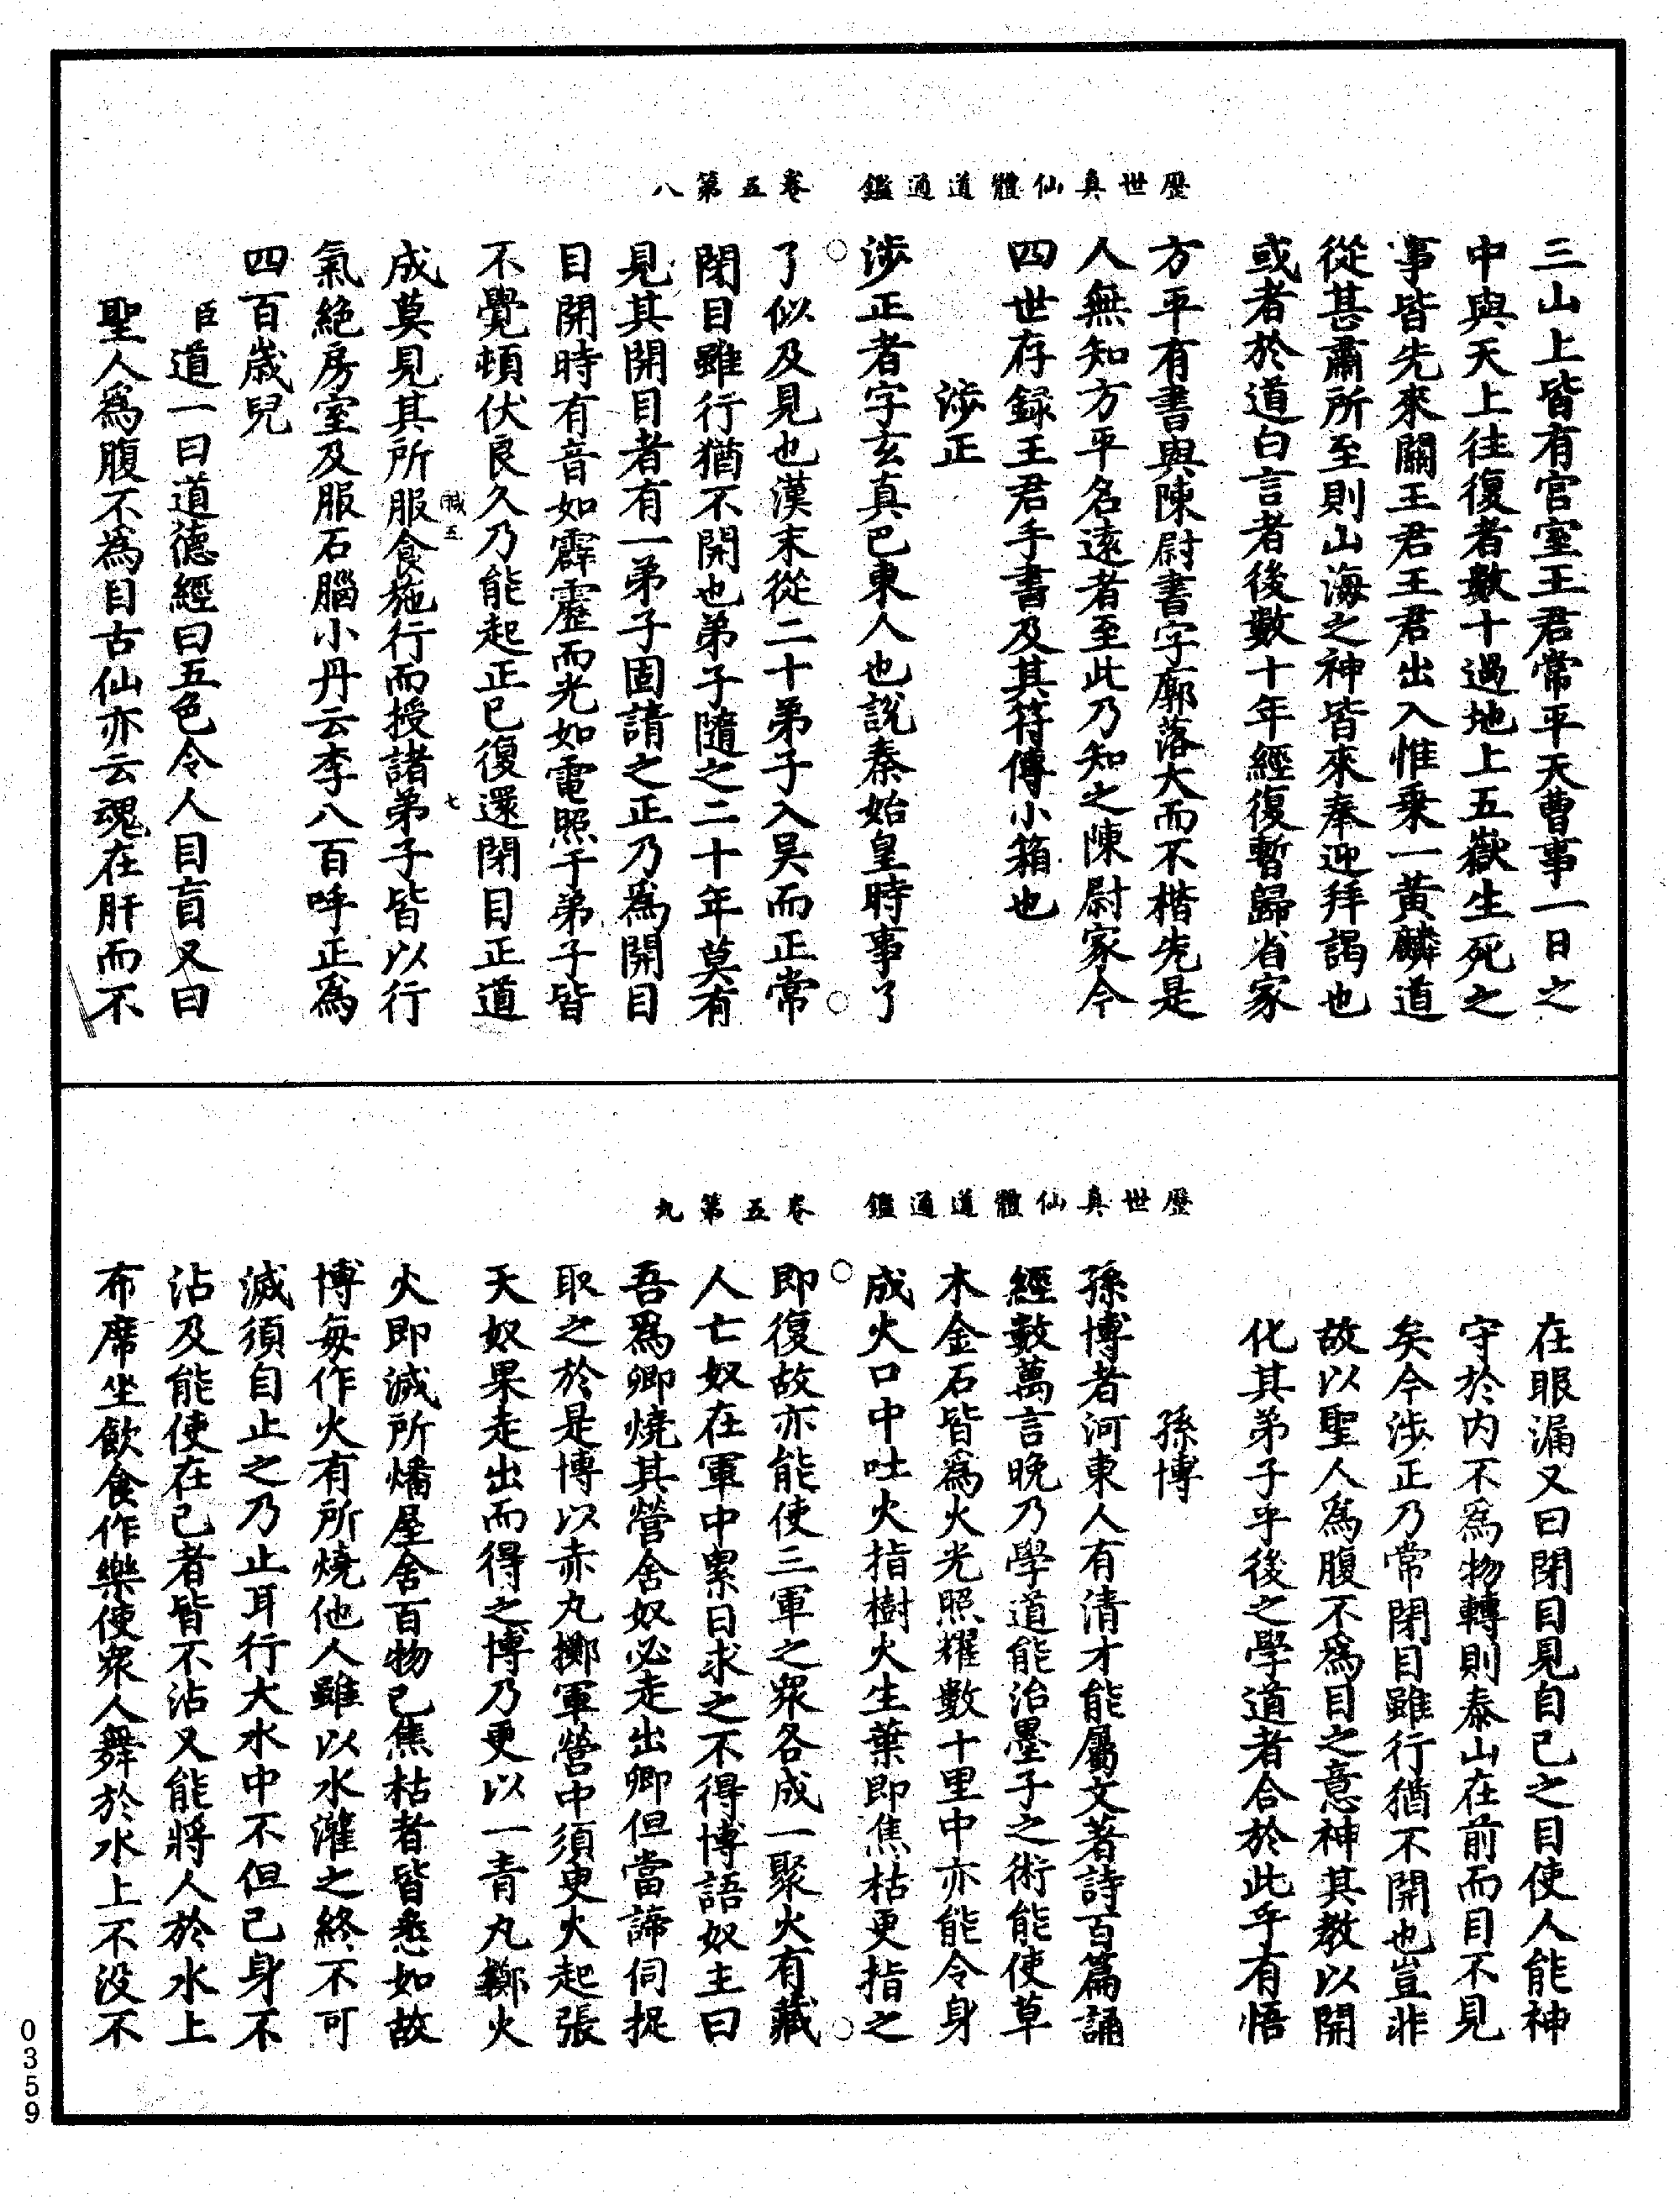 歷世真仙體道通鑑　卷五第八
三山上皆有宮室王君常平天曹事一日之
中與天上往復者數十過地上五嶽生死之
事皆先來關王君王君出入惟乘一黃麟道
從甚肅所至則山海之神皆來奉迎拜謁也
或者於道白言者後數十年經復暫歸省家
方平有書與陳尉書字廓落大而不楷先是
人無知方平名遠者至此乃知之陳尉家今
四世存録王君手書及其符傳小箱也
涉正
涉正者字玄真巴東人也說秦始皇時事了
了似及見也漢末從二十弟子入吳而正常
閉目雖行猶不開也弟子隨之二十年莫有
見其開目者有一弟子固請之正乃爲開目
目開時有音如霹靂而光如電照于弟子皆
不覺頓伏良久乃能起正已復還閉目正道
五　七
成莫見其所服食施行而授諸弟子皆以行
氣絶房室及服石腦小丹云李八百呼正爲
四百歲兒
臣道一曰道德經曰五色令人目盲又曰
聖人爲腹不爲目古仙亦云魂在肝而不
歷世真仙體道通鑑　卷五第九
在眼漏又曰閉目見自己之目使人能神
守於内不爲物轉則泰山在前而目不見
矣今涉正乃常閉目雖行猶不開也豈非
故以聖人爲腹不爲目之意神其教以開
化其弟子乎後之學道者合於此乎有悟
孫博
孫博者河東人有清才能屬文著詩百篇誦
經數萬言晚乃學道能治墨子之術能使草
木金石皆爲火光照耀數十里中亦能令身
成火口中吐火指樹火生葉即焦枯更指之
即復故亦能使三軍之衆各成一聚火有藏
人亡奴在軍中累日求之不得博語奴主曰
吾爲卿燒其營舍奴必走出卿但當諦伺捉
取之於是博以赤丸擲軍營中須更火起張
天奴果走出而得之博乃更以一青丸擲火
火即滅所燔屋舍百物已焦枯者皆悉如故
博每作火有所燒他人雖以水灌之終不可
滅須自止之乃止耳行大水中不但己身不
沾及能使在己者皆不沾又能將人於水上
布席坐飲食作樂使衆人舞於水上不没不
0359